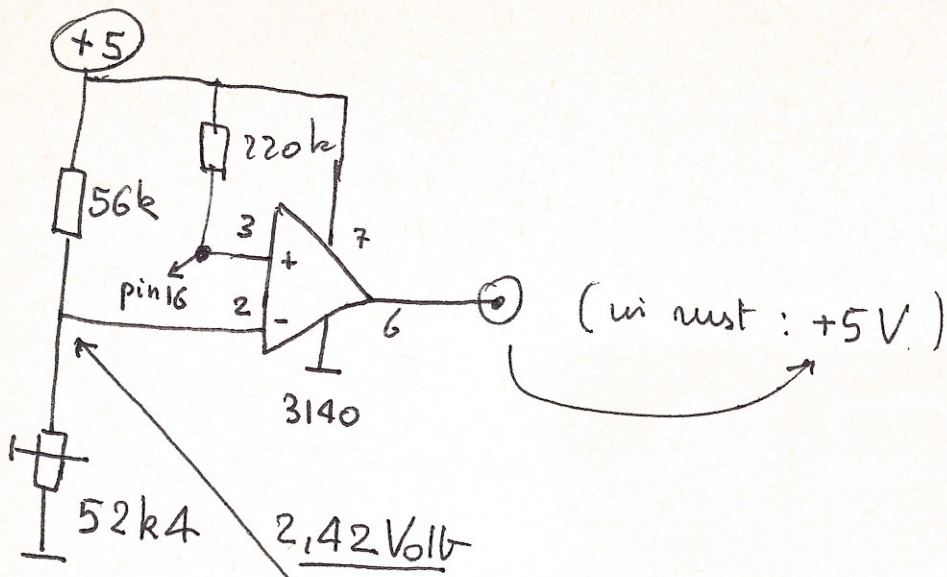 +5
220k
56k
3
7
+
pin16
2
-
6
(in rust : +5V)
3140
52k4
2,42 Volt